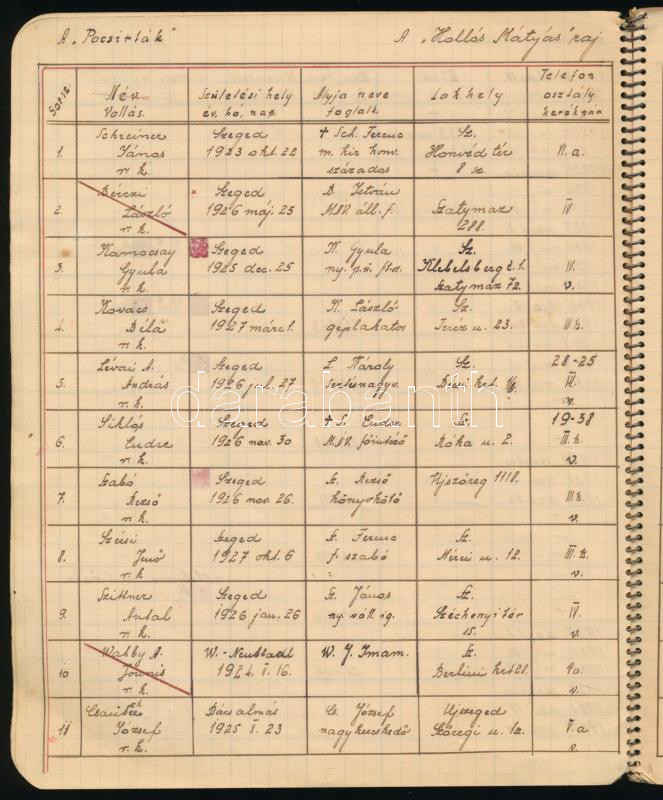 A „Pocsirták"
A „Hollós Mátyás" raj
Sorsz.
Név.
Vallás.
Születési hely
év, hó, nap.
Atyja neve
foglalk.
Lakhely
Telefon
osztály
kerékpár
1.
Schreiner
János
r. k.
Szeged
1923 okt. 22
† Sch. Ferenc
m. kir. honv.
százados
Sz.
Honvéd tér
8 sz.
VI. a.
2.
Bérczi
László
r. k.
Szeged
1926 máj. 25
B. István
MÁV. áll. f.
Szatymaz
288.
IV
3.
Kamocsay
Gyula
r. k.
Szeged
1925 dec. 25
K. Gyula
ny. p. ü.
Sz.
Klebelsberg t. 1.
Szatymaz 72.
IV.
v.
4.
Kovács
Béla
r. k.
Szeged
1927 márc 1.
K. László
géplakatos
Sz.
Teréz u. 23.
III b.
5.
Lévai A.
András
r. k.
Szeged
1926 jul. 27
L. Károly
sertésnagyv.
Sz.
Bécsi krt.
28-25
IV.
v.
6.
Siklós
Endre
r. k.
Szeged
1926 nov. 30
† S. Endre
MÁV. főintéző
Sz.
Róka u. 2.
19-58
III. b.
v.
7.
Szabó
Rezső
r. k.
Szeged
1926 nov. 26.
Sz. Rezső
könyvkötő
Ujszőreg 1118.
III b.
v.
8.
Szécsi
Jenő
r. k.
Szeged
1927 okt. 6
Sz. Ferenc
f. szabó
Sz.
Mérei u. 12.
III. b.
v.
9.
Szittner
Antal
r. k.
Szeged
1926 jan. 26
Sz. János
ny. váll. ig.
Sz.
Széchenyi tér
15.
IV.
v.
10
Wahby A.
r. k.
W.-Neustadt
1924. I. 16.
W. J. Imam.
Sz.
Berlini krt 28.
V a.
v.
11
József
r. k.
Bácsalmás
1925 X. 23
Cs. József
nagykereskedő
Ujszeged
Szőregi u. 12.
V. a
v.
darabanth